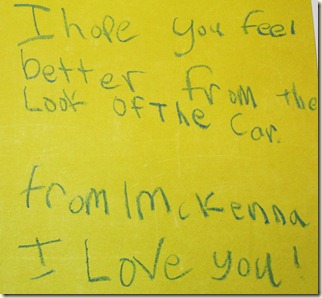 I hope you feel
better from the
Look Of The Car.
from Mckenna
I Love you!